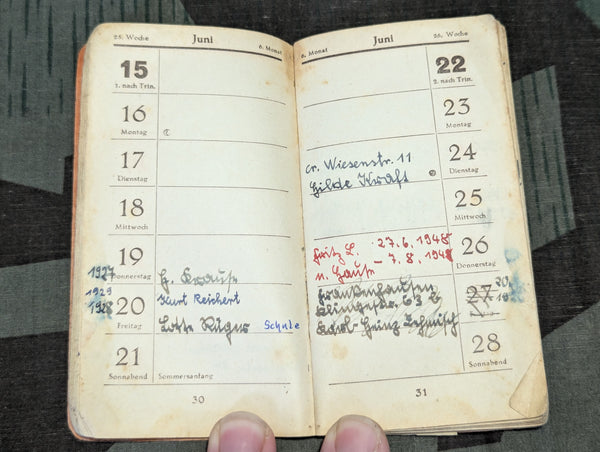 25. Woche Juni 6. Monat
15
2. nach Trin.
16
Montag
17
Dienstag
18
Mittwoch
19
1927 Donnerstag
1929
1928
20
Freitag
Kurt Reichert
Lotte Rüger Schule
21
Sonnabend Sommersanfang
30
6. Monat Juni 26. Woche
22
3. nach Trin.
23
Montag
24
Dienstag
cr. Wiesenstr. 11
Hilde Kraft
25
Mittwoch
Fritz L. 27.6.1948
n. Hause – 7.8.1948
26
Donnerstag
Frankenhausen
Klingestr. 63
27
Karl-Heinz
28
Sonnabend
31